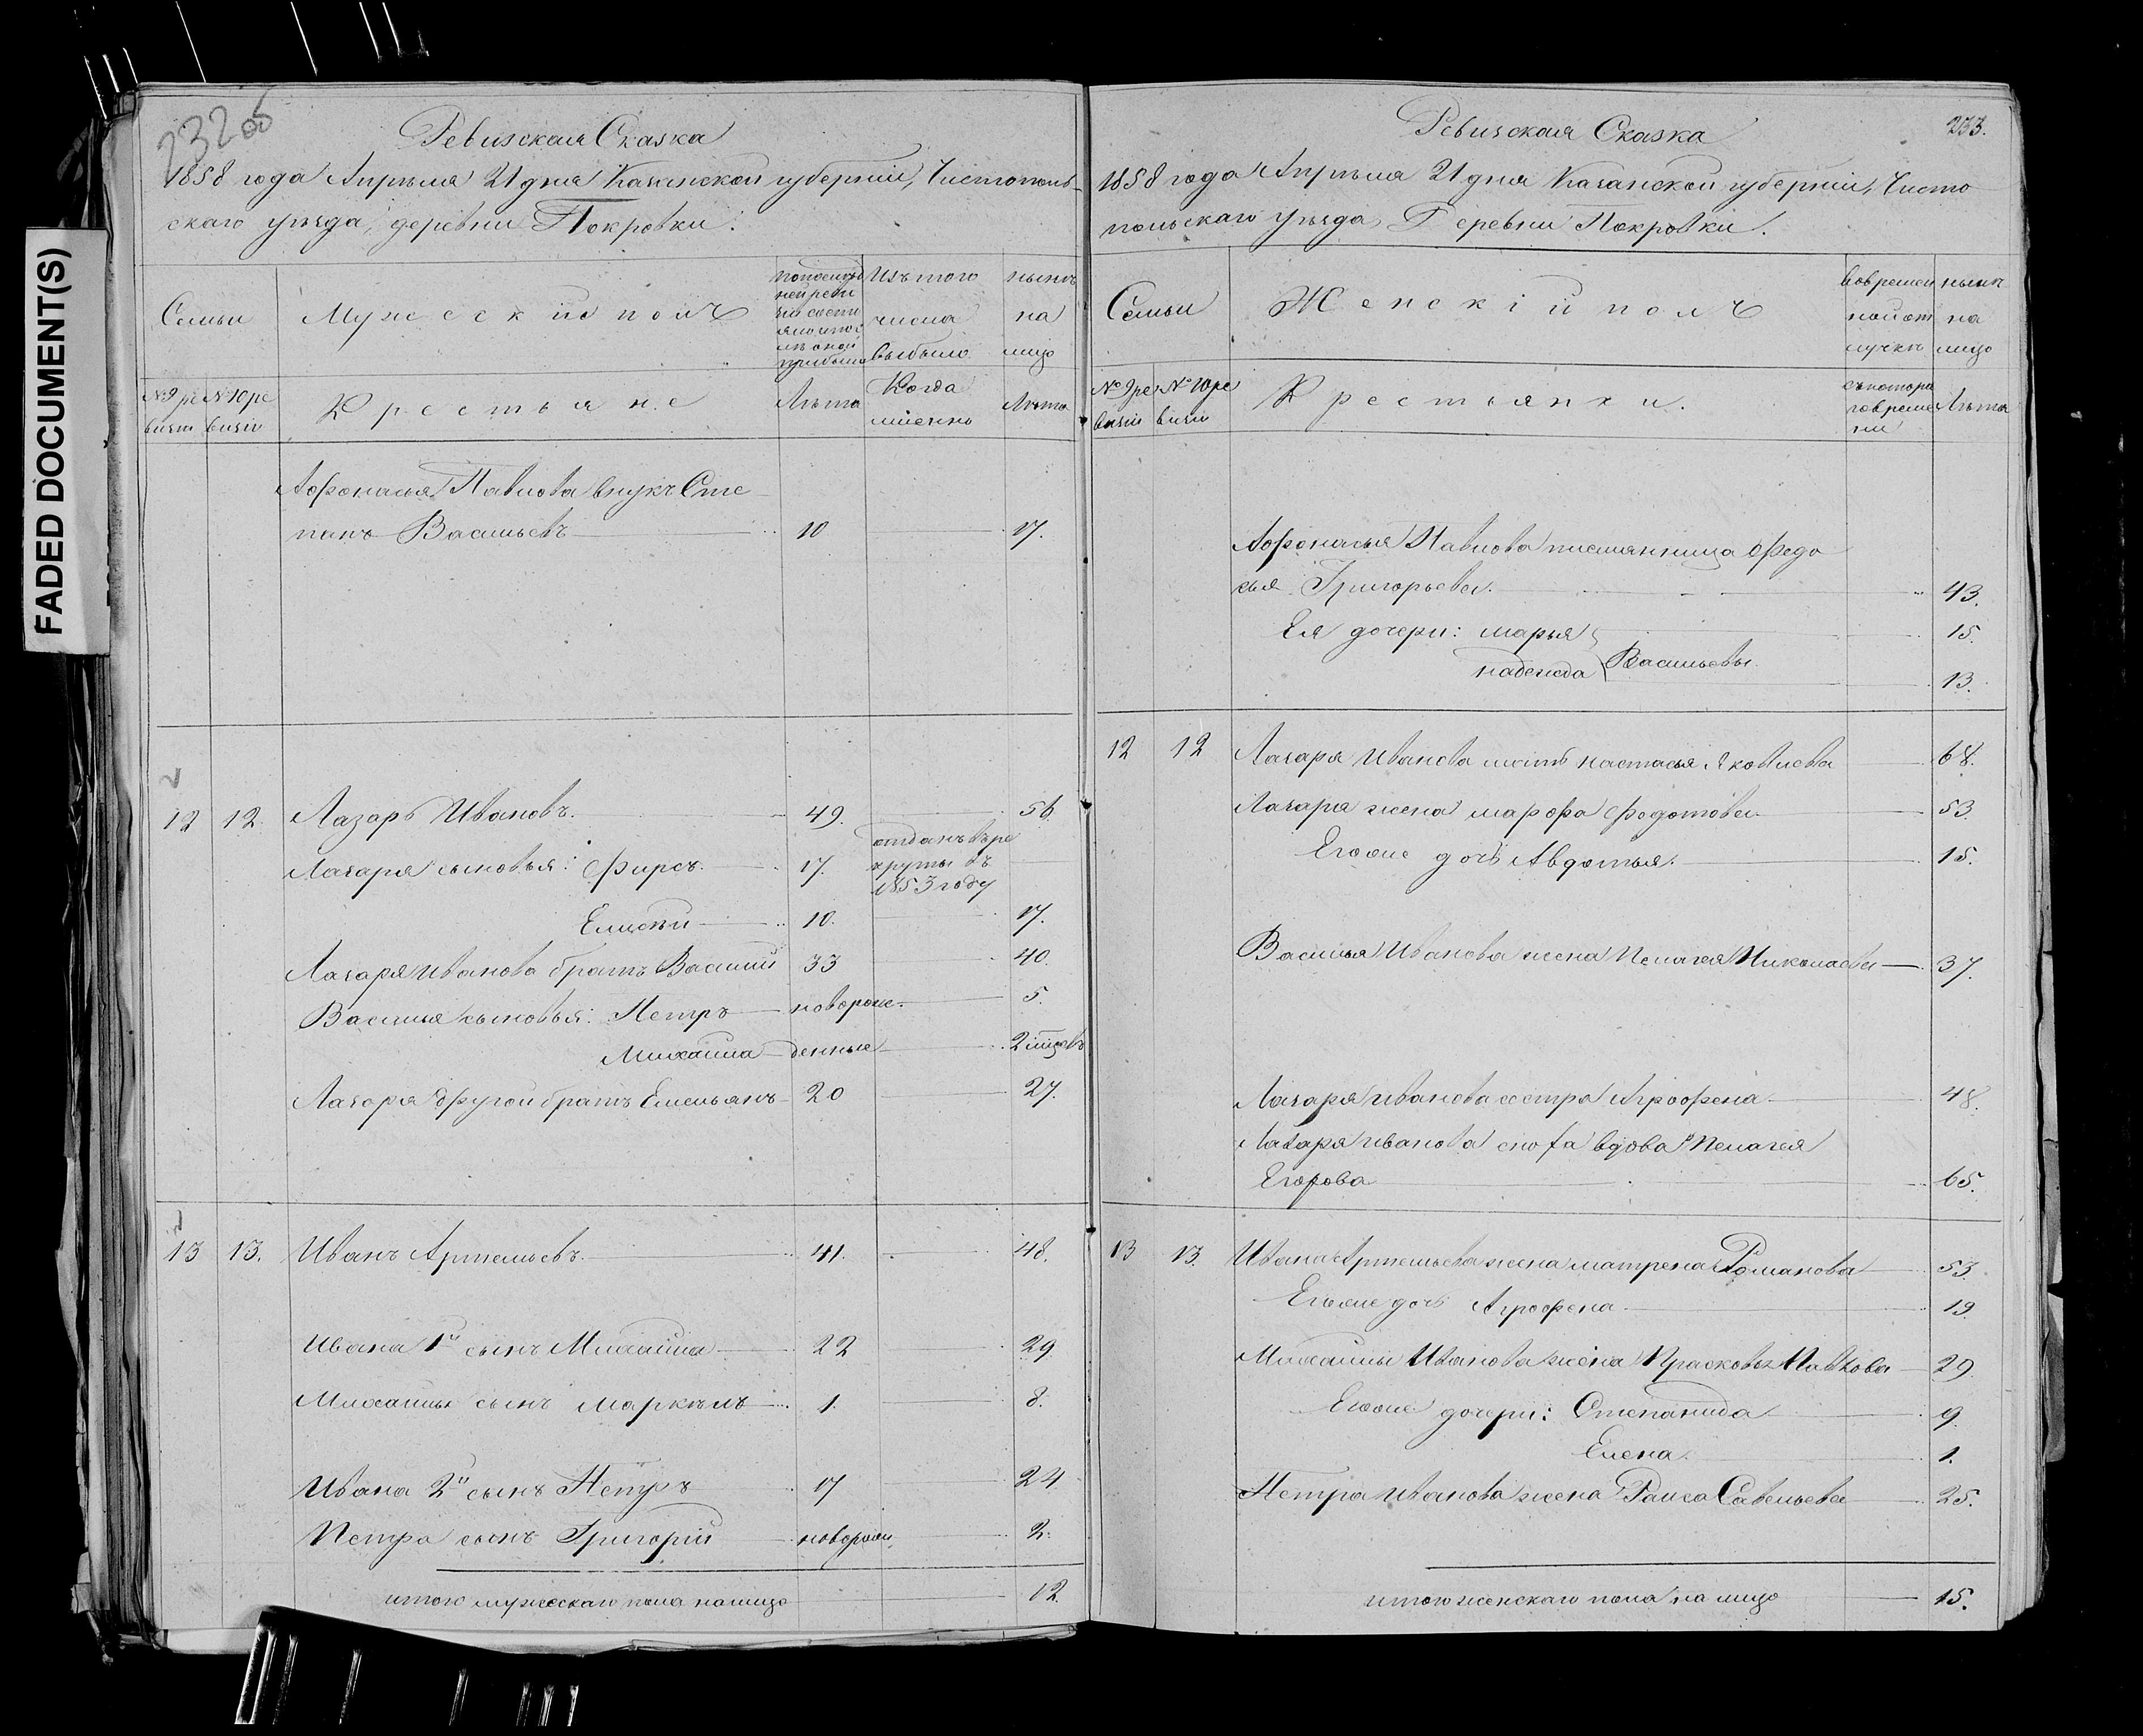 FADED DOCUMENT(S)
232об
Ревизская Сказка
1858 года Апрѣля 21 дня Казанской губерніи, Чистополь-
скаго уѣзда, деревни Покровки.
Семьи
Мужескій полъ
по послѣд
ней реви
зіи состо
яло и пос
лѣ оной
прибыло
Изъ того
числа
выбыло
нынѣ
на
лицо
№ 9 ре
визіи
№ 10 ре
визіи
Крестьяне
Лѣта
Когда
именно
Лѣта
Афонасья Павлова внукъ Сте
панъ Васильевъ 10 17.
12 12 Лазарь Ивановъ. 49. 56
Лазаря сыновья: Фирсъ. 17. отданъ въ ре
круты въ
1853 году
Елисѣй 10. 17.
Лазаря Иванова братъ Василій 33 40.
Василья сыновья: Петръ новорож- 5.
Михаила денные 2 мѣсяцовъ
Лазаря другой братъ Емельянъ 20 27.
13 13. Иванъ Артемьевъ. 41. 48.
Ивана 1й сынъ Михаила 22 29
Михаилы сынъ Маркелъ 1. 8.
Ивана 2й сынъ Петръ 17 24
Петра сынъ Григорій новорож. 2.
итого мужескаго пола на лицо 12.
Ревизская Сказка
233.
1858 года Апрѣля 21 дня Казанской губерніи, Чисто
польскаго уѣзда, Деревни Покровки.
Семьи
Женскій полъ
во времен
ной от
лучкѣ
нынѣ
на
лицо
№ 9 ре
визіи
№ 10 ре
визіи
Крестьянки.
съ котора
го време
ни
Лѣта
Афонасья Павлова племянница Федо
сья Григорьева. 43.
Ея дочери: Марья 15.
Надежда Васильевы. 13.
12 12 Лазаря Иванова мать Настасья Яковлева 68.
Лазаря жена Марфа Федотова 53.
Егоже дочь Авдотья. 15.
Василья Иванова жена Пелагея Николаева 37.
Лазаря Иванова сестра Аграфена 48.
Лазаря Иванова сноха вдова Пелагея
Егорова 65.
13 13. Ивана Артемьева жена Матрена Романова 53.
Егоже дочь Аграфена 19
Михаилы Иванова жена Прасковья Павлова 29
Егоже дочери: Степанида 9.
Елена. 1.
Петра Иванова жена Раиса Савельева 25.
итого женскаго пола на лицо 15.